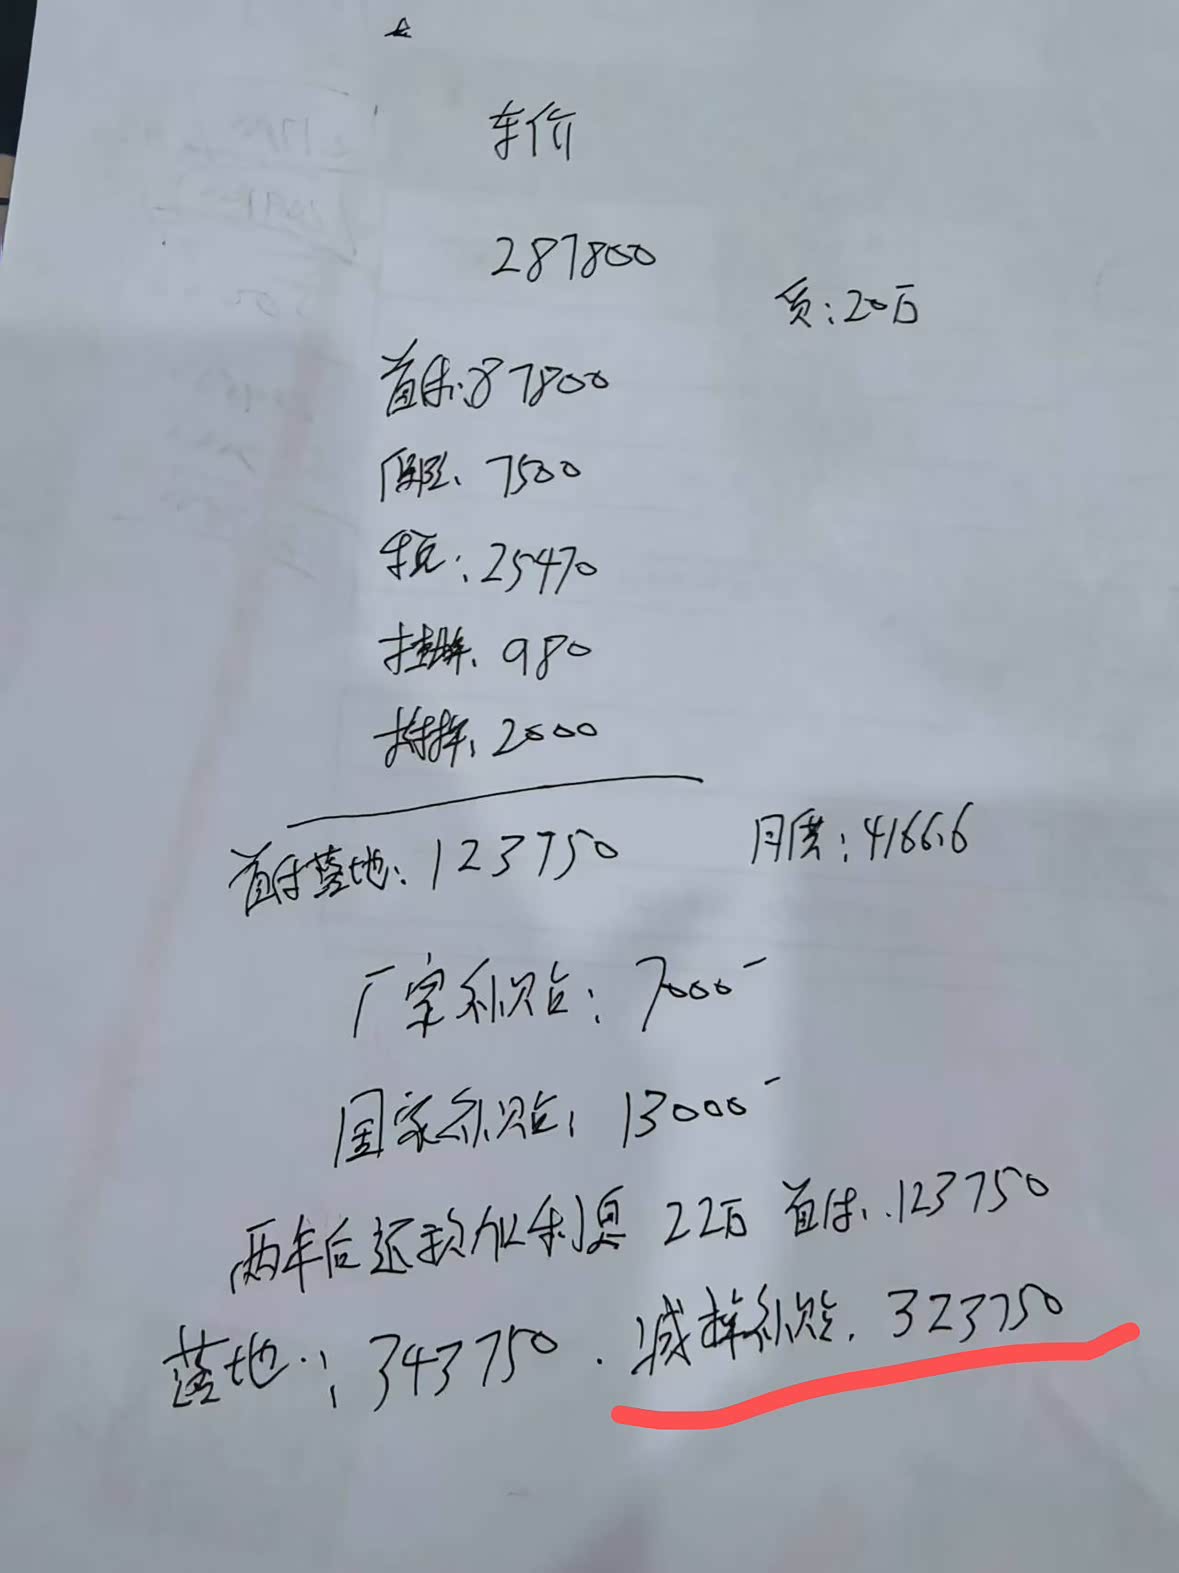 车价
287800
贷:20万
首付:87800
保险:7500
车税:25470
挂牌:980
持择:2000
首付落地:123750
月供:4166.6
厂家补贴:7000
国家补贴:13000
两年后还款加利息 22万 首付:123750
落地:343750. 减掉补贴:323750